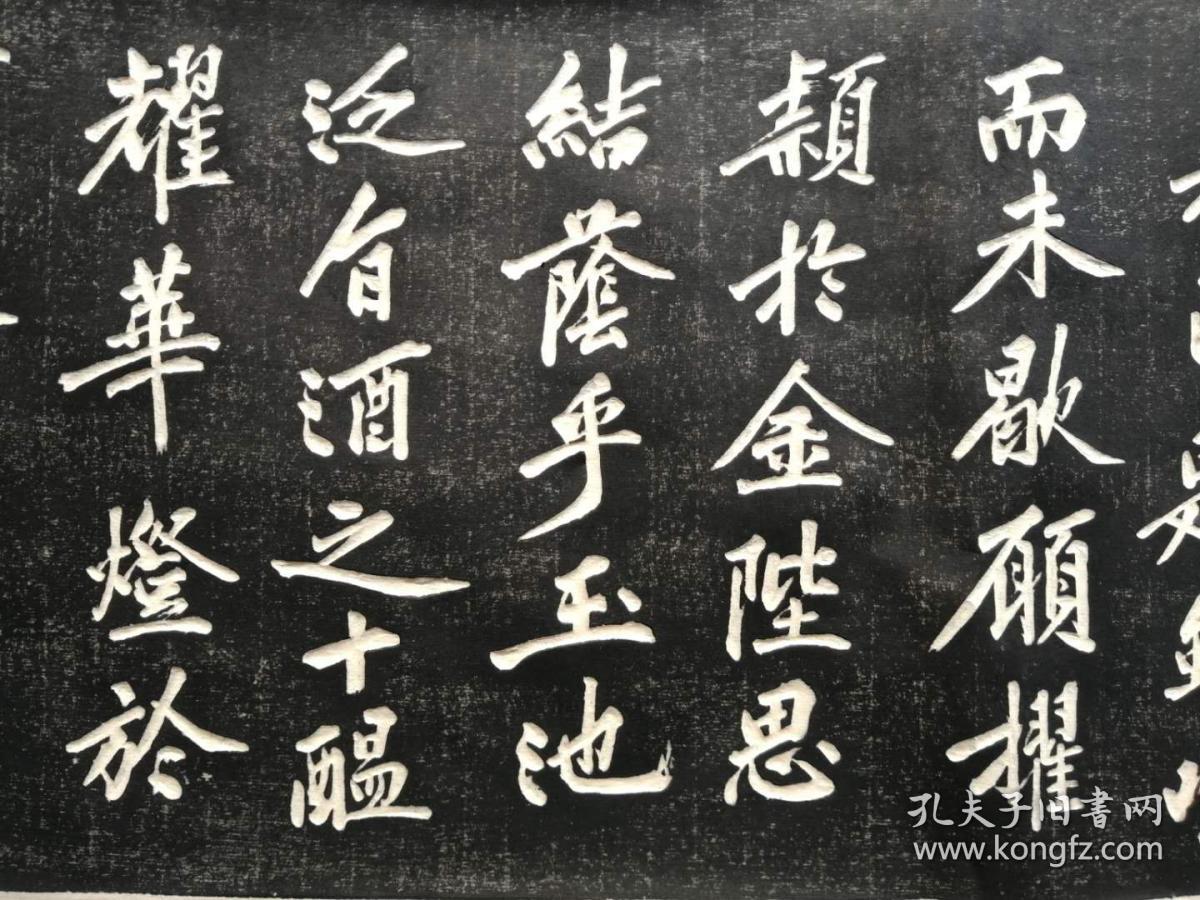 而未歇願擢
穎於金陛思
結蔭乎玉池
泛旨酒之十醖
耀華燈於
孔夫子旧書网
www.kongfz.com